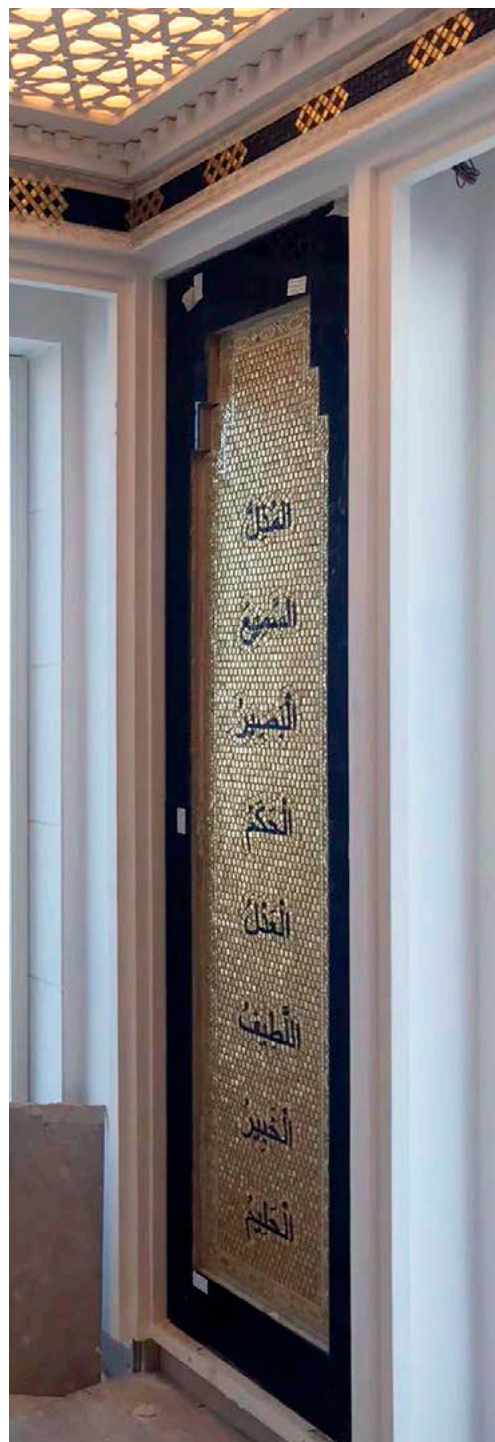 المُذِلُّ
السَّمِيعُ
الْبَصِيرُ
الْحَكَمُ
الْعَدْلُ
اللَّطِيفُ
الْخَبِيرُ
الْحَلِيمُ